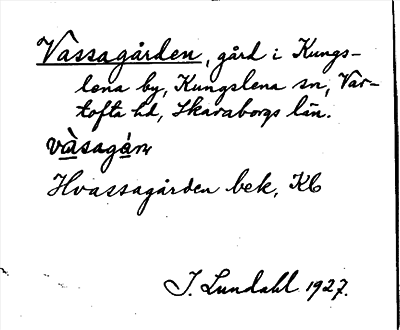 Vassagården, gård i Kungs-
lena by, Kungslena sn, Var-
tofta hd, Skaraborgs län.
vàsagán
Hvassagården bek, Kb
I. Lundahl 1927.